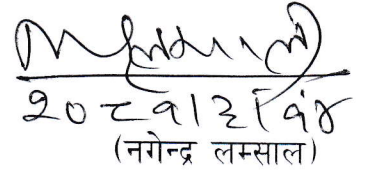 २०८१।३।१४
(नगेन्द्र लम्साल)